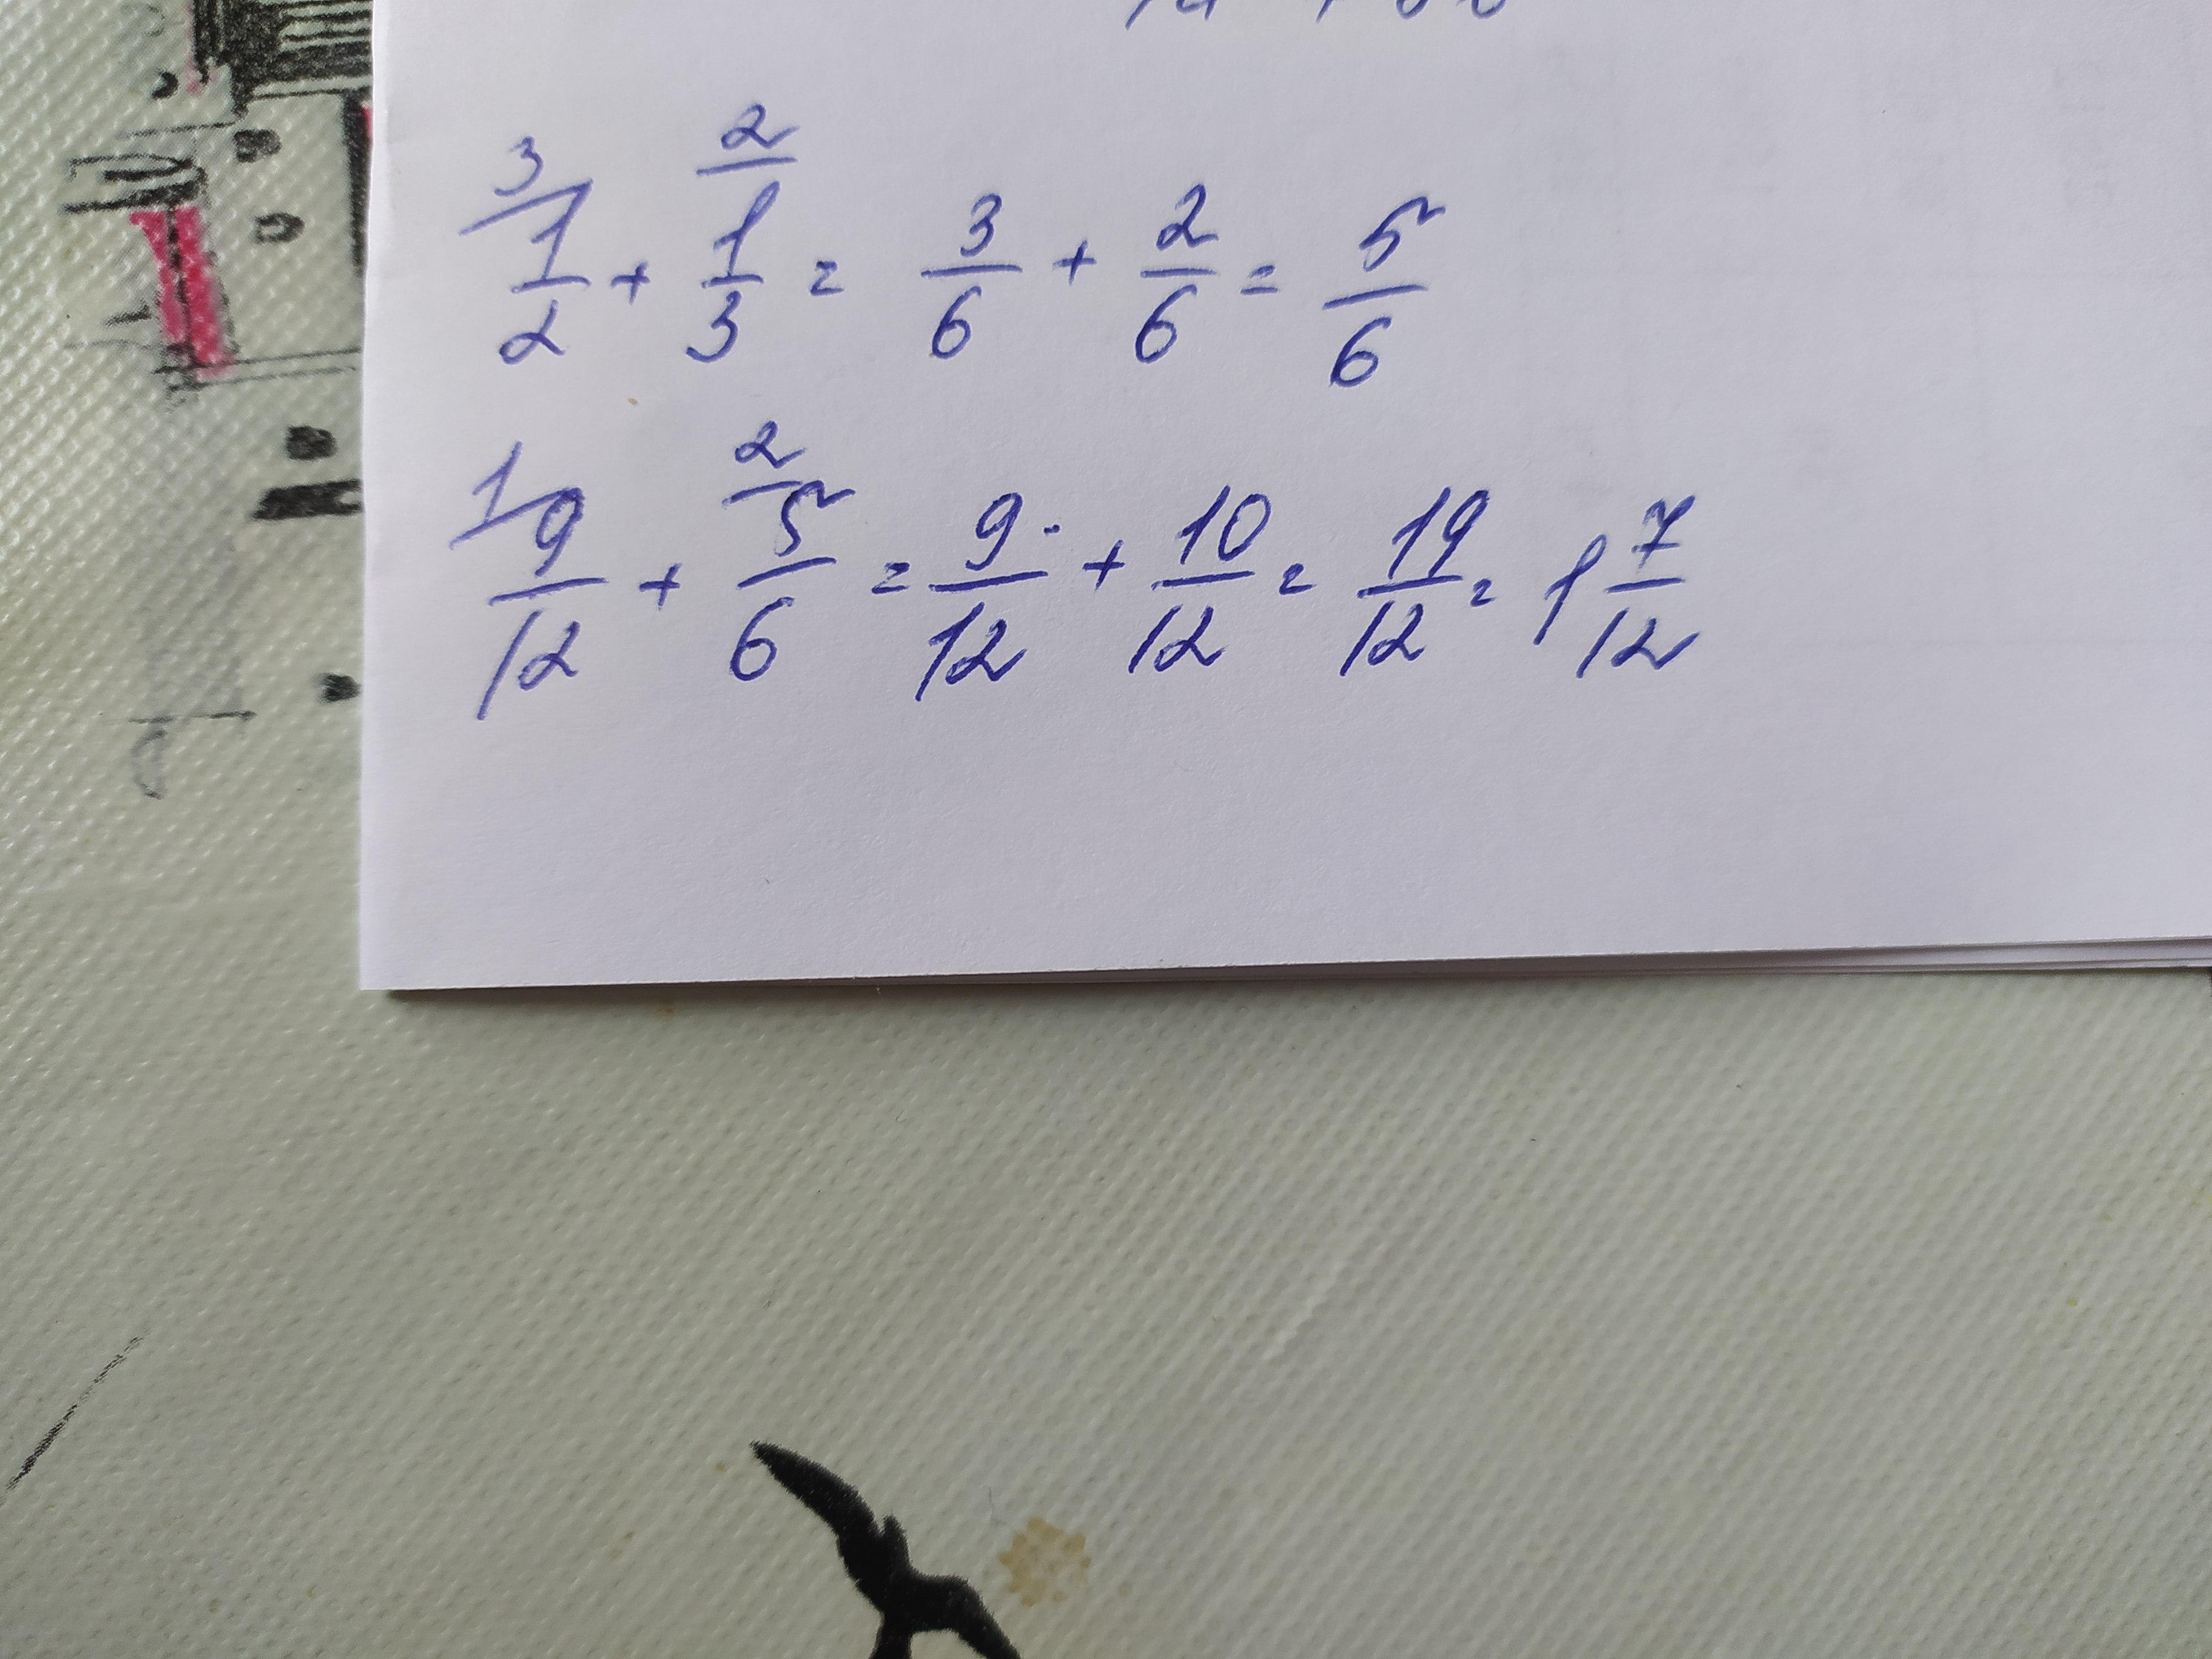 3/ 2/
1/2 + 1/3 = 3/6 + 2/6 = 5/6
1/ 2/
9/12 + 5/6 = 9/12 + 10/12 = 19/12 = 1 7/12